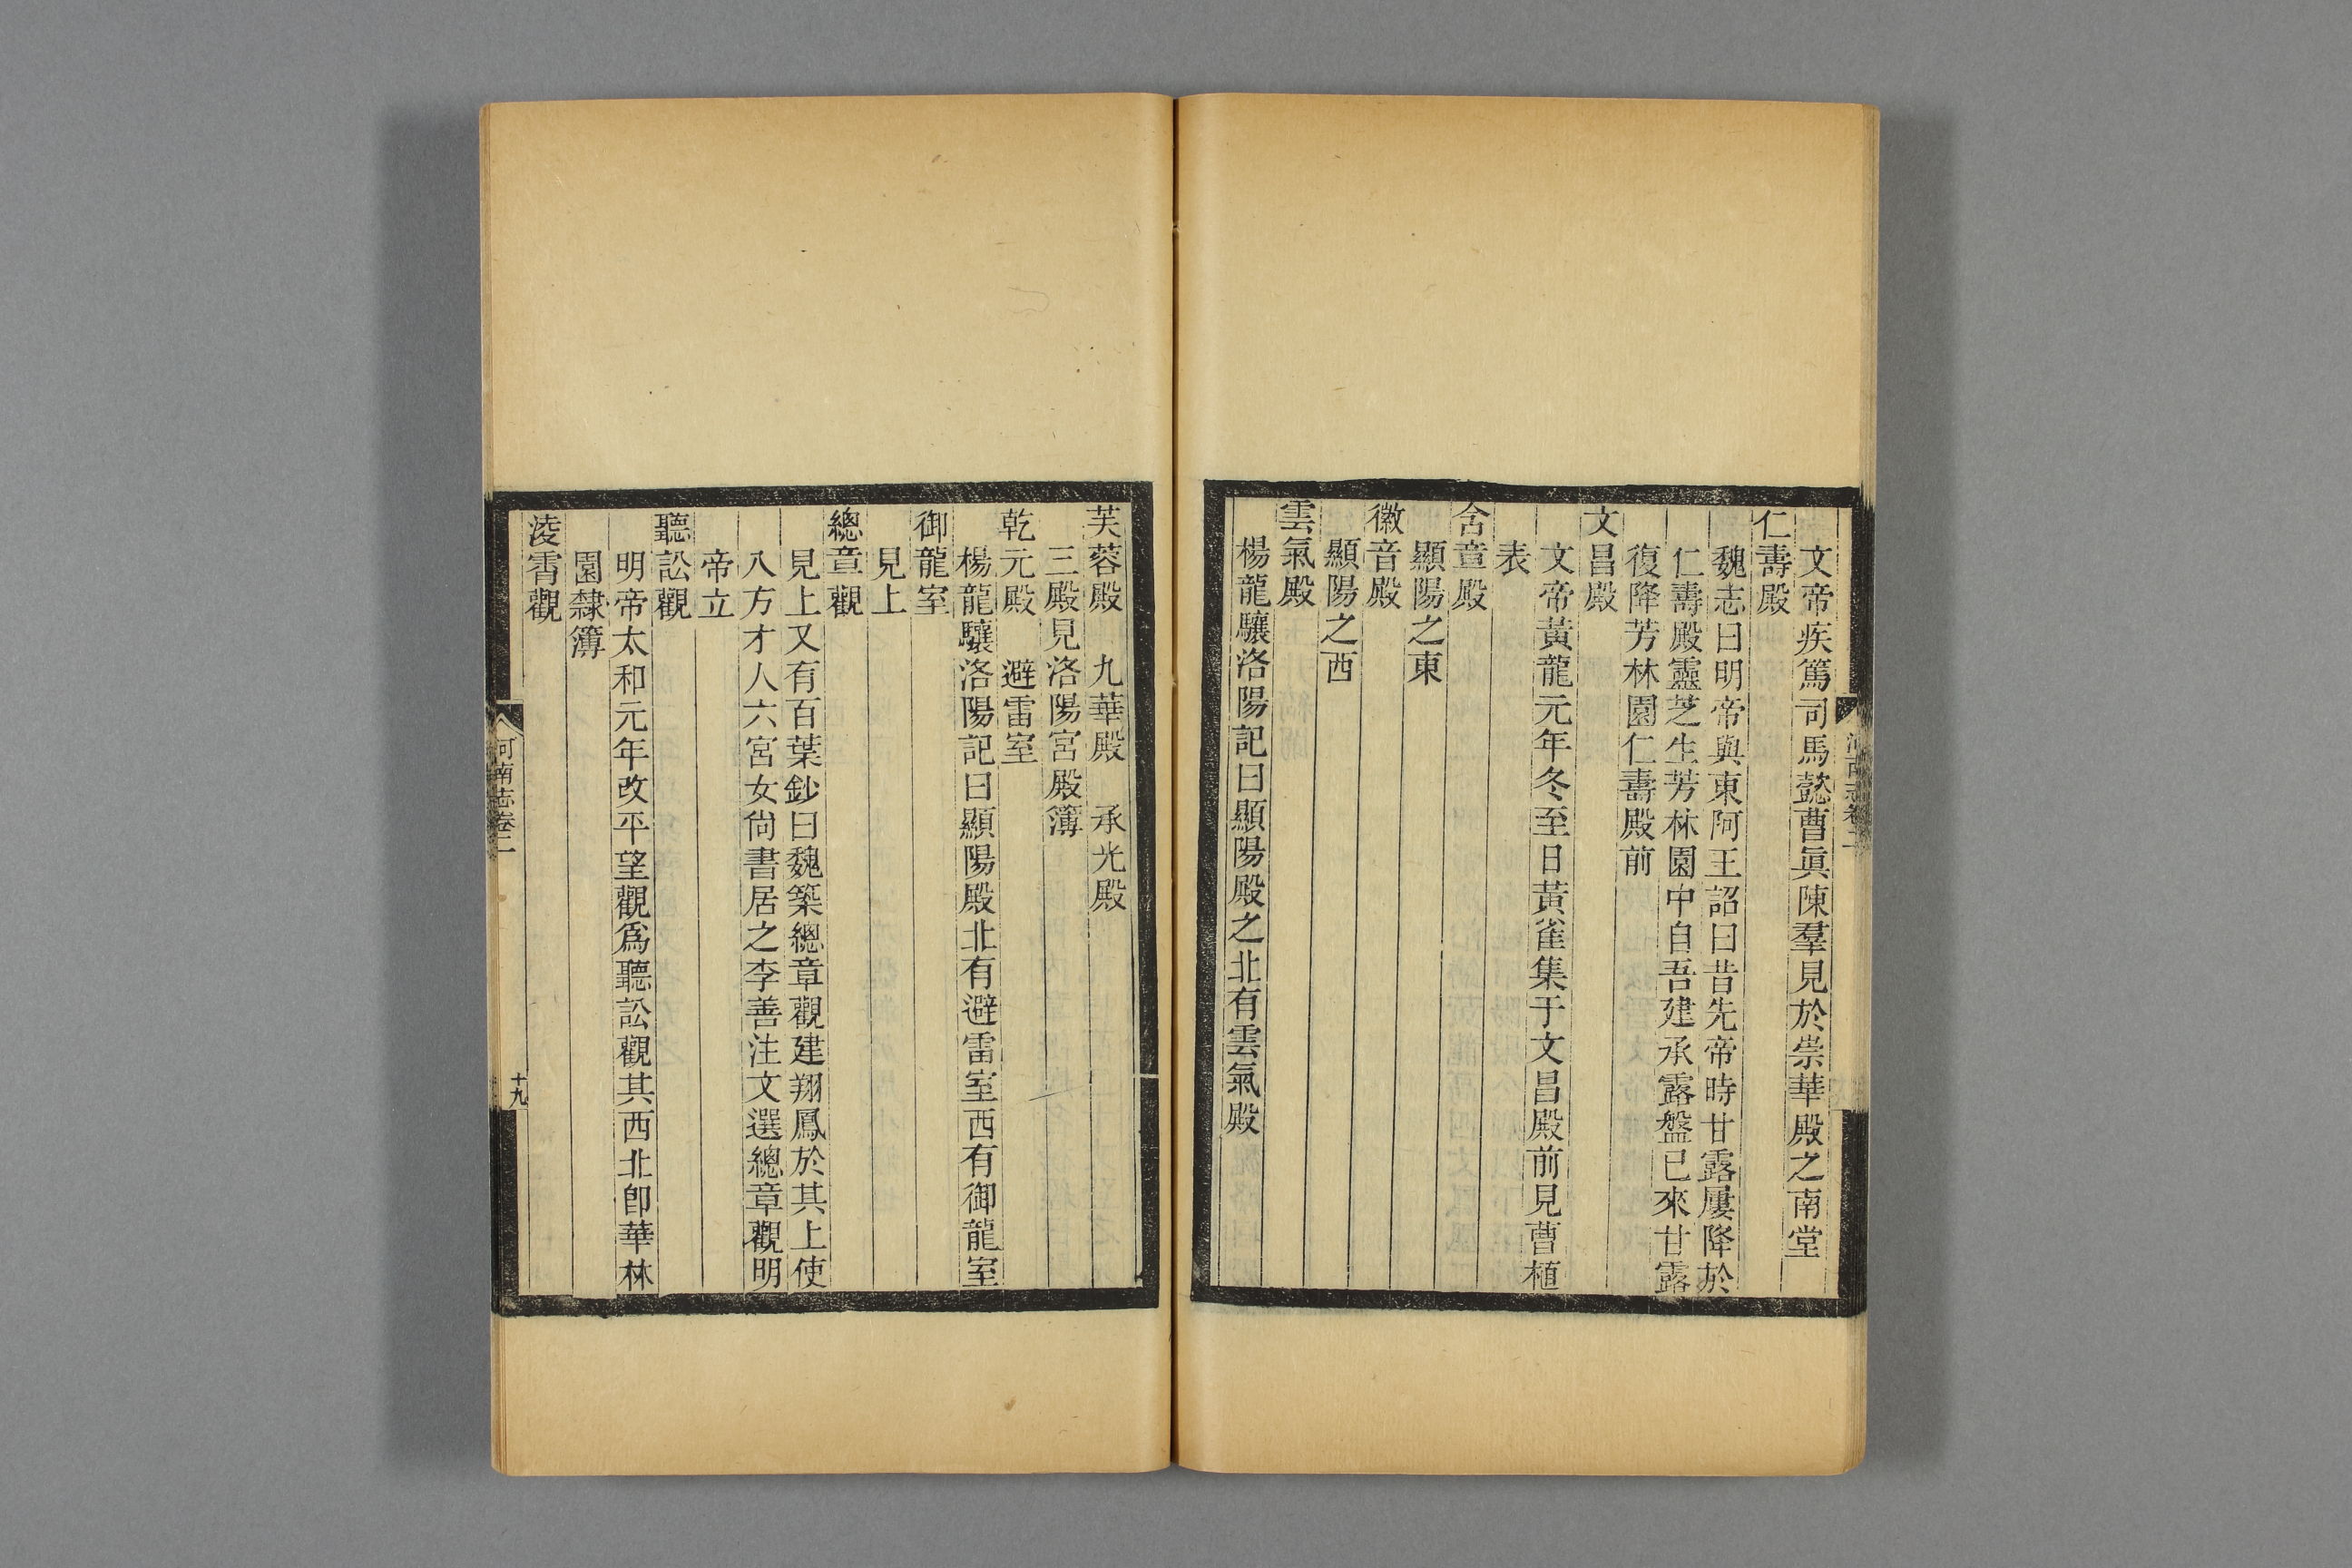 文帝疾篤司馬懿曹眞陳羣見於崇華殿之南堂
仁壽殿
魏志曰明帝與東阿王詔曰昔先帝時甘露屢降於
仁壽殿靈芝生芳林園中自吾建承露盤已來甘露
復降芳林園仁壽殿前
文昌殿
文帝黃龍元年冬至日黃雀集于文昌殿前見曹植
表
含章殿
顯陽之東
徽音殿
顯陽之西
雲氣殿
楊龍驤洛陽記曰顯陽殿之北有雲氣殿
芙蓉殿　九華殿　承光殿
三殿見洛陽宮殿簿
乾元殿　避雷室
楊龍驤洛陽記曰顯陽殿北有避雷室西有御龍室
御龍室
見上
總章觀
見上又有百葉鈔曰魏築總章觀建翔鳳於其上使
八方才人六宮女尙書居之李善注文選總章觀明
帝立
聽訟觀
明帝太和元年改平望觀爲聽訟觀其西北卽華林
園隸簿
淩霄觀
河南志卷二
十九